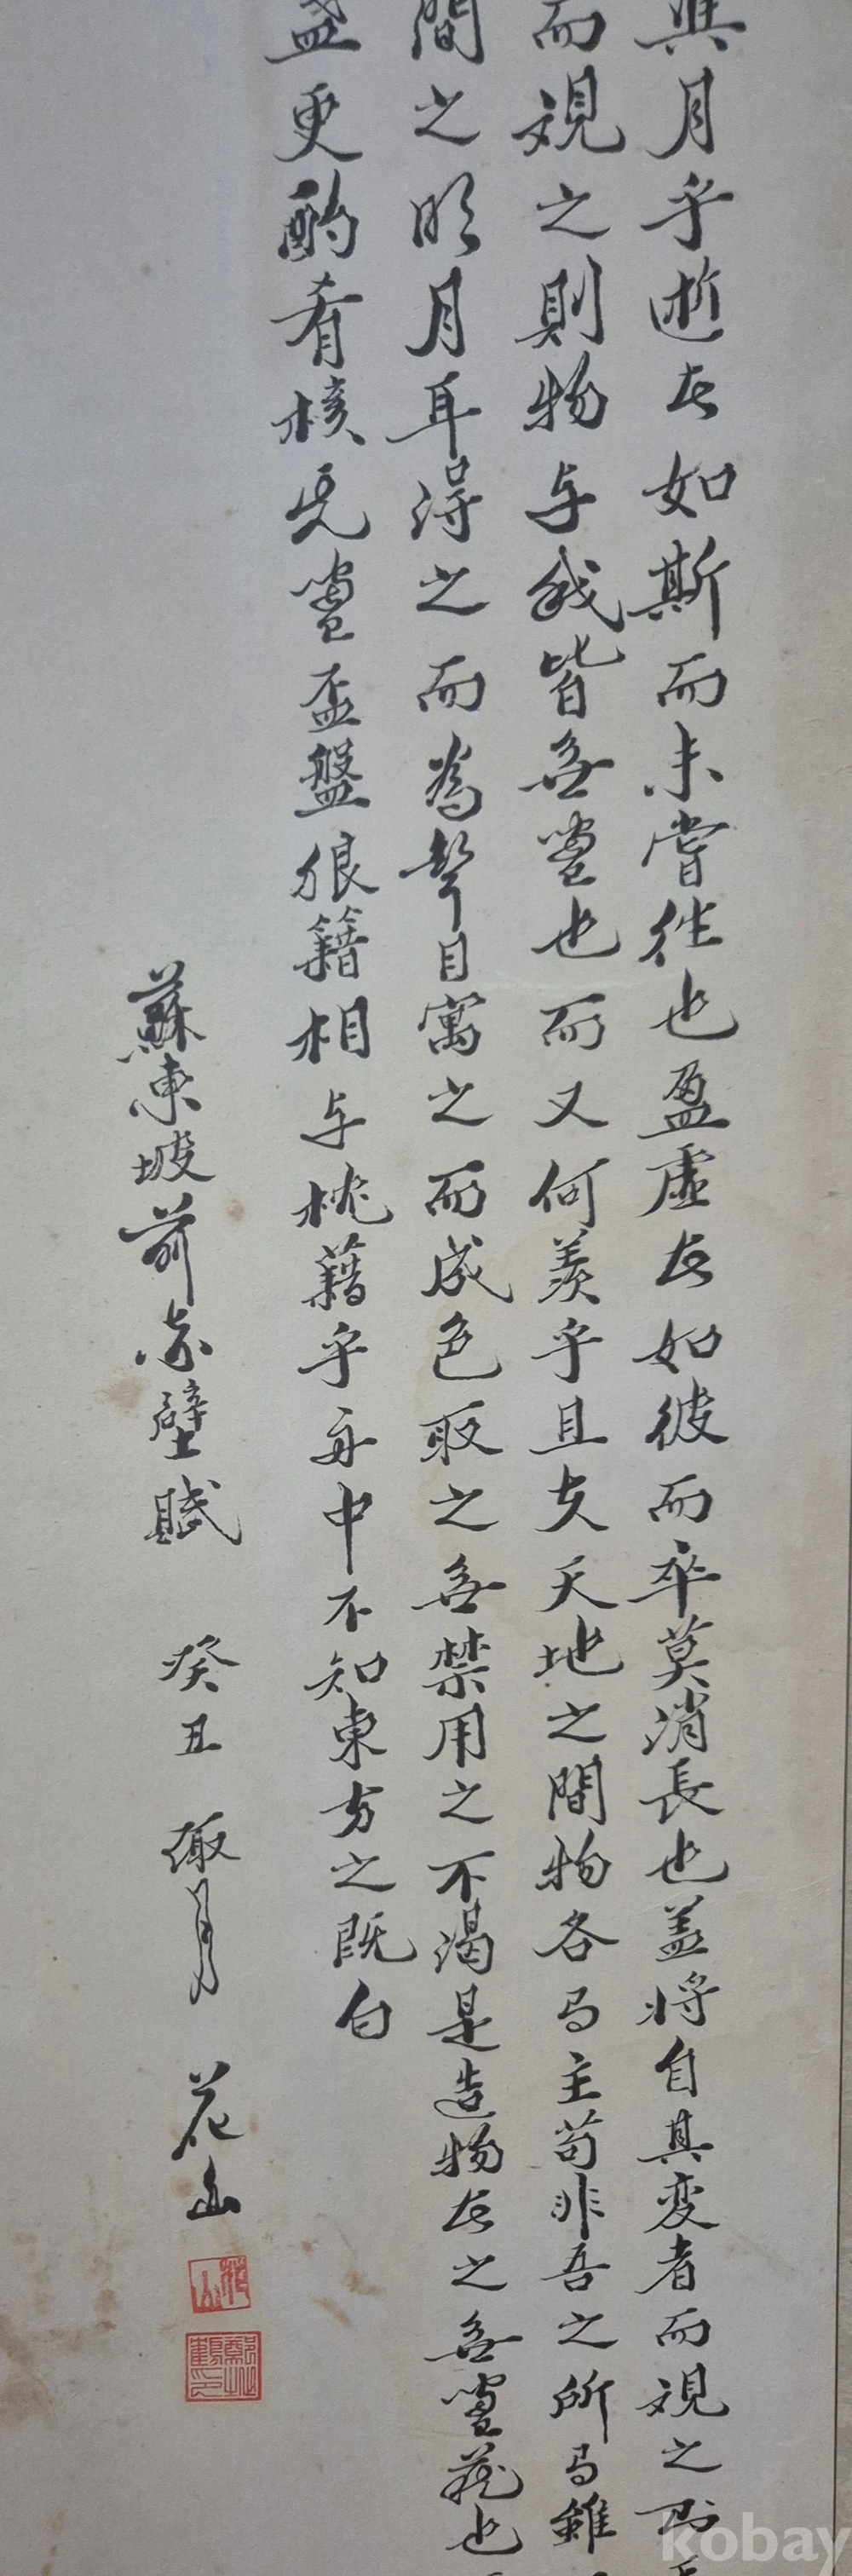 與月乎逝者如斯而未嘗往也盈虛者如彼而卒莫消長也盖將自其変者而観之則
而視之則物与我皆無盡也而又何羨乎且夫天地之間物各有主苟非吾之所有雖
間之明月耳得之而為聲目寓之而成色取之無禁用之不渴是造物者之無盡藏也
盞更酌肴核既盡盃盤狼籍相与枕藉乎舟中不知東方之既白
蘇東坡前赤壁賦 癸丑 月 花山
花山
kobay